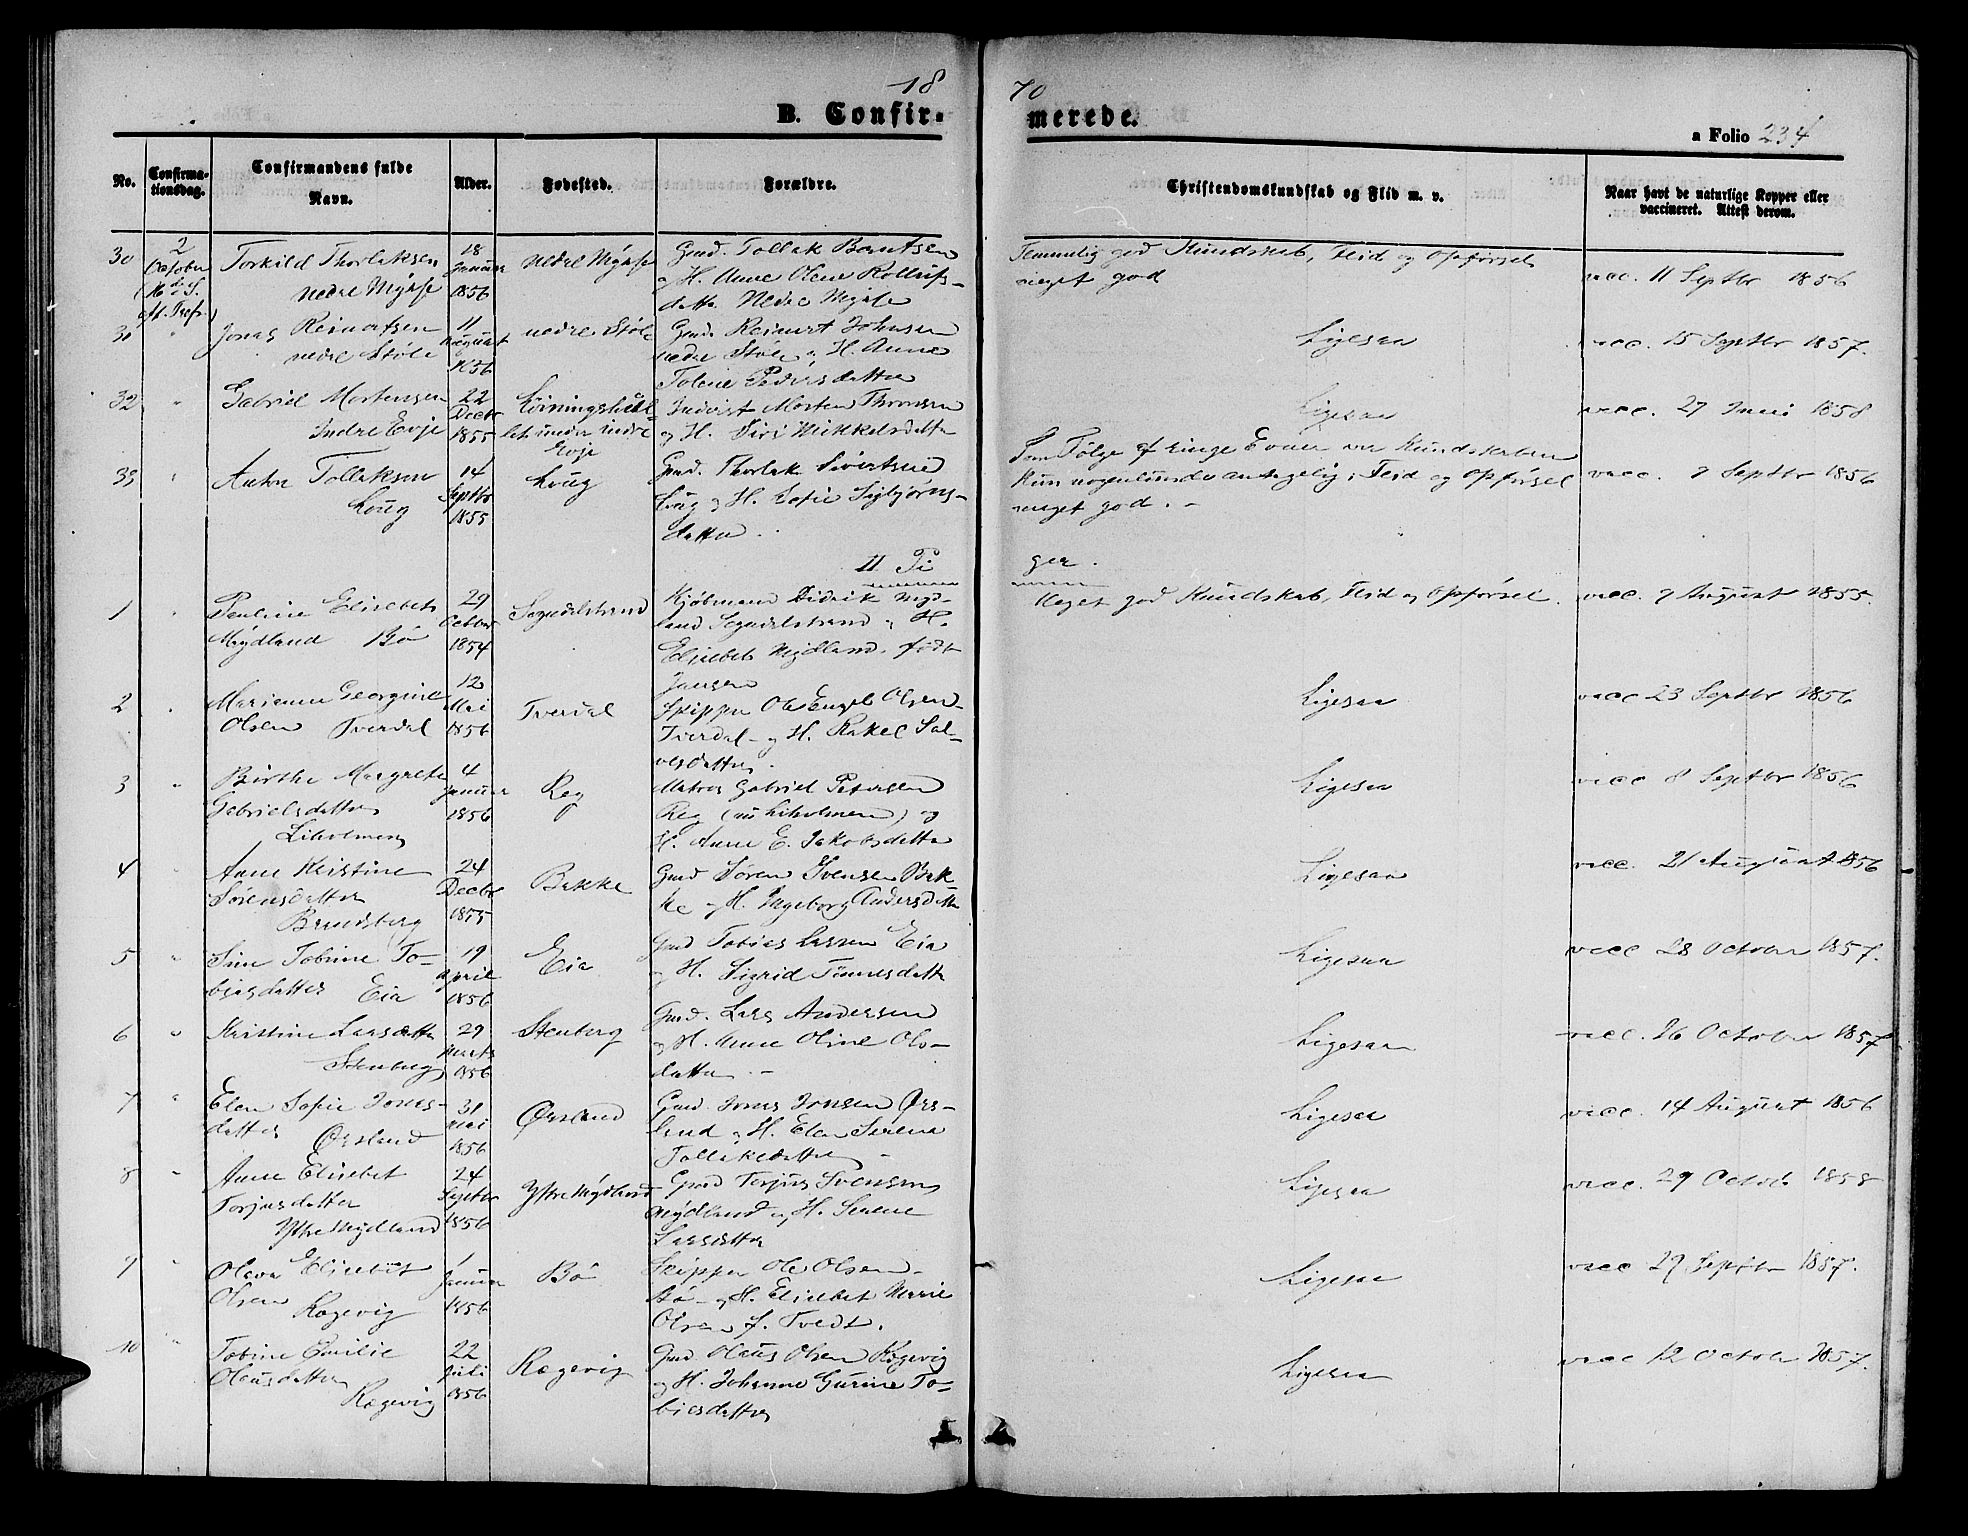 18 70
B. Confirmerede.
a Folio 234
No. Confirmationsdag. Confirmandens fulde Navn. Alder. Fødested. Forældre. Christendomskundskab og Flid m. v. Naar havt de naturlige Kopper eller vaccineret. Attest derom.
30 2 October Torkild Thorlaksen 18 Januar nedre Mydse Gmd. Tollak Berntsen Temmelig god Kundskab, Flid og Opførsel
nedre 1856 og H. Anne Olene meget god vacc. 11 Septbr 1856
datter nedre
31 " Jonas Reinertsen 11 August nedre Støle Gmd. Reinert Johnsen Ligesaa vacc. 15 Septbr 1857.
nedre Støle 1856 nedre Støle og H. Anne
Tolene Pedersdatter
32 " Gabriel Mortensen 22 Decbr Morten Thronsen Ligesaa vacc. 27 Juni 1858
Indre Evje 1855 let under indre og H. Siri Mikkelsdatter
Evje
33 " Anton Tollaksen 14 Septbr Loug Gmd. Thorlak Sivertsen Som Følge af ringe Evner var Kundskaben
Loug 1855 Loug og H. Sofie Sigbjørns- kun nogenlunde antagelig; Flid og Opførsel vacc. 9 Septbr 1856
datter meget god. -
II. Piger.
1 " Pauline Elisebet 29 October Sogndalstrand Kjøbmand Didrik Myd- Meget god Kundskab, Flid og Opførsel. vacc. 9 August 1855.
Mydland Bø 1854 land Sogndalstrand og H.
Elisebet Mydland, født
Jansen
2 " Marianne Georgine 12 Mai Tverdal Skipper Ole Engel Olsen Ligesaa vacc 23 Septbr 1856
Olsen Tverdal 1856 Tverdal og H. Rakel Sal-
vesdatter
3 " Birthe Margrete 4 Januar Reg Matros Gabriel Petersen Ligesaa vacc 8 Septbr 1856
Gabrielsdatter 1856 Reg (nu Liholmen) og
Liholmen H. Anne E. Jakobsdatter
4 " Anne Kristine 24 Decbr Bakke Gmd Søren Svensen Bak- Ligesaa vacc. 21 August 1856
Sørensdatter 1855 ke og H. Ingeborg Andersdatter
Brendsberg
5 " Sine Tobine To- 19 April Eia Gmd Tobias Larsen Eia Ligesaa vacc 28 October 1857.
biasdatter Eia 1856 og H. Sigrid Tønnesdatter
6 " Kristine Larsdatter 29 Marts Stenberg Gmd. Lars Andersen Ligesaa vacc. 26 October 1857
Stenberg 1856 og H. Anne Oline Ols-
datter. -
7 " Elen Sofie Jonas- 31 Mai Ørsland Gmd. Jonas Jonsen Ørs- Ligesaa vacc. 14 August 1856
datter Ørsland 1856 land og H. Elen Serene
Tollaksdatter
8 " Anne Elisebet 24 Septbr Ystre Mydland Gmd Torjus Svensen Ligesaa vacc. 29 Octob. 1858
Torjusdatter 1856 Mydland og H. Serene
Ystre Mydland Larsdatter
9 " Olava Elisebet 1 Januar Bø Skipper Ole Olsen Ligesaa vacc 29 Septbr 1857.
Olsen Rægevig 1856 Bø og H. Elisebet Marie
Olsen f. Tvedt.
10 " Tobine Emilie 22 Juli Rægevig Gmd Olaus Olsen Rægevig Ligesaa vacc 12 October 1857.
Olausdatter 1856 og H. Johanne Gurine To-
Rægevig biasdatter